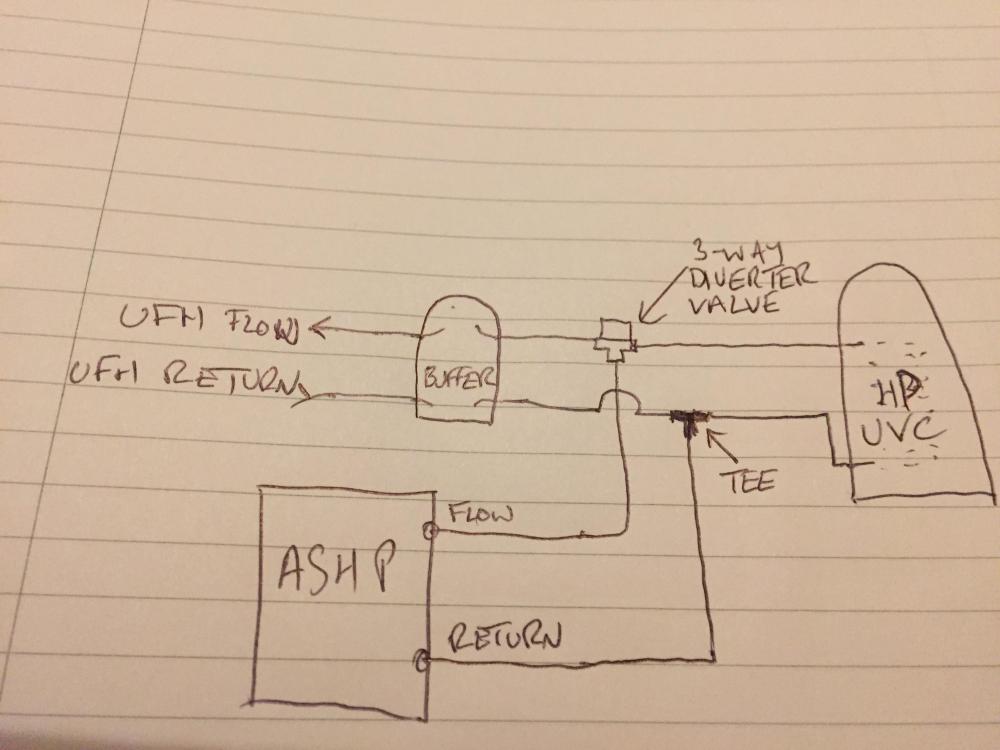 3-WAY
DIVERTER
VALVE
UFH FLOW
UFH RETURN
BUFFER
HP
UVC
TEE
FLOW
ASHP
RETURN